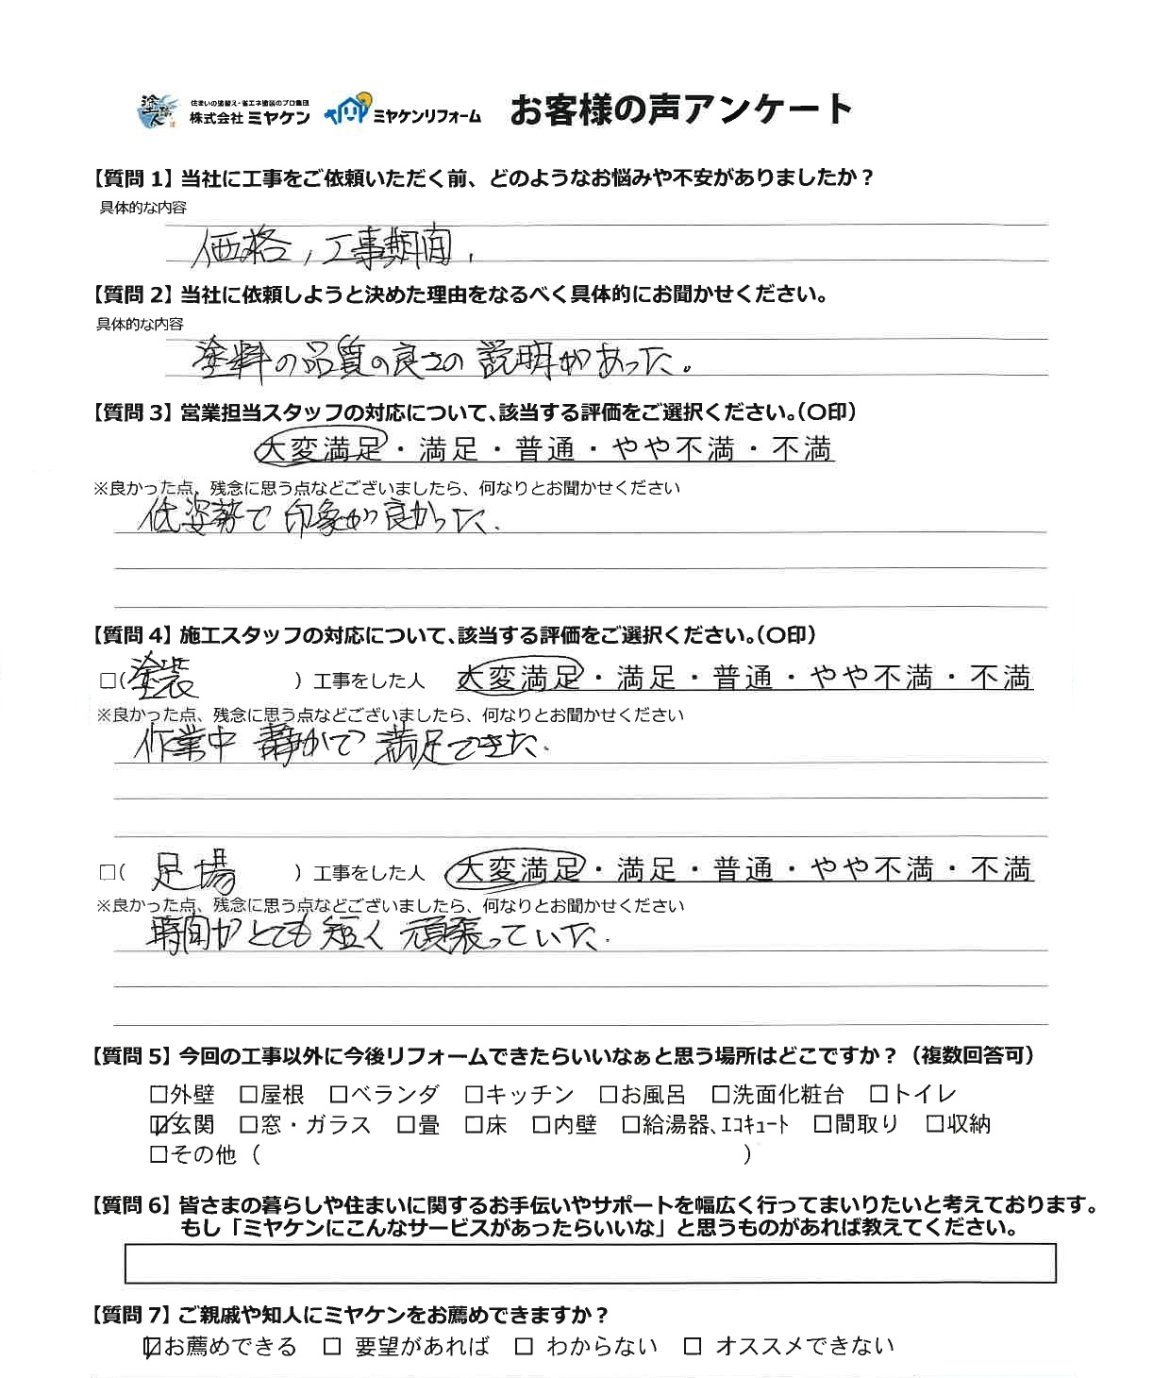 塗 職人 住まいの塗替え・省エネ塗装のプロ集団
株式会社 ミヤケン ミヤケンリフォーム お客様の声アンケート
【質問 1】当社に工事をご依頼いただく前、どのようなお悩みや不安がありましたか？
具体的な内容
価格，工事期間．
【質問 2】当社に依頼しようと決めた理由をなるべく具体的にお聞かせください。
具体的な内容
塗料の品質の良さの説明があった。
【質問 3】営業担当スタッフの対応について、該当する評価をご選択ください。（〇印）
大変満足・満足・普通・やや不満・不満
※良かった点、残念に思う点などございましたら、何なりとお聞かせください
低姿勢で印象が良かった．
【質問 4】施工スタッフの対応について、該当する評価をご選択ください。（〇印）
□（塗装）工事をした人 大変満足・満足・普通・やや不満・不満
※良かった点、残念に思う点などございましたら、何なりとお聞かせください
作業中静かで満足できた．
□（足場）工事をした人 大変満足・満足・普通・やや不満・不満
※良かった点、残念に思う点などございましたら、何なりとお聞かせください
時間がとても短く頑張っていた．
【質問 5】今回の工事以外に今後リフォームできたらいいなぁと思う場所はどこですか？（複数回答可）
□外壁 □屋根 □ベランダ □キッチン □お風呂 □洗面化粧台 □トイレ
☑玄関 □窓・ガラス □畳 □床 □内壁 □給湯器、ｴｺｷｭｰﾄ □間取り □収納
□その他（ ）
【質問 6】皆さまの暮らしや住まいに関するお手伝いやサポートを幅広く行ってまいりたいと考えております。
もし「ミヤケンにこんなサービスがあったらいいな」と思うものがあれば教えてください。
【質問 7】ご親戚や知人にミヤケンをお薦めできますか？
☑お薦めできる □ 要望があれば □ わからない □ オススメできない